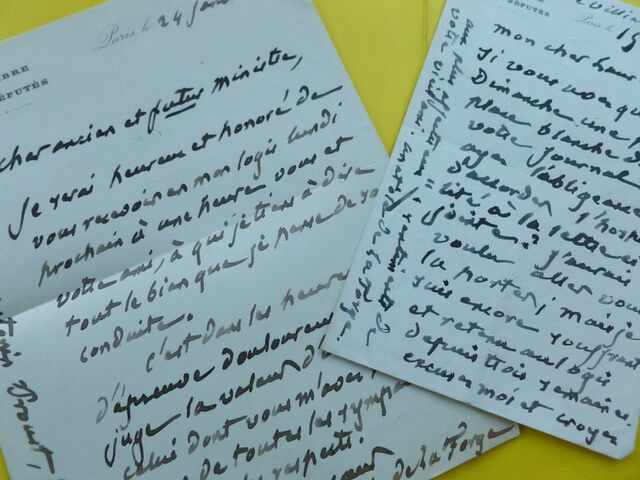 BRE
DÉPUTÉS
Paris, le 24
cher ancien et futur ministre,
Je serai heureux et honoré de
vous recevoir en mon logis lundi
prochain à une heure vous et
votre ami, à qui je tiens à dire
tout le bien que je pense de sa
conduite.
C'est dans les heures
d'épreuve douloureu
juge la valeur d'
celui dont vous m'avez
de toutes les sympa
respects.
de La Forge
Proust,
DÉPUTÉS
Paris, le
19
mon cher
Si vous
Dimanche une
place blanche
votre journal
ayez l'obligeance
d'accorder l'hosp
" à la lettre
J'aurais
voulu aller vous
la porter; mais je
suis encore souffrant
et retenu au logis
depuis trois semaines.
excusez moi et croyez
aux
votre vieil ami.
de La Forge.